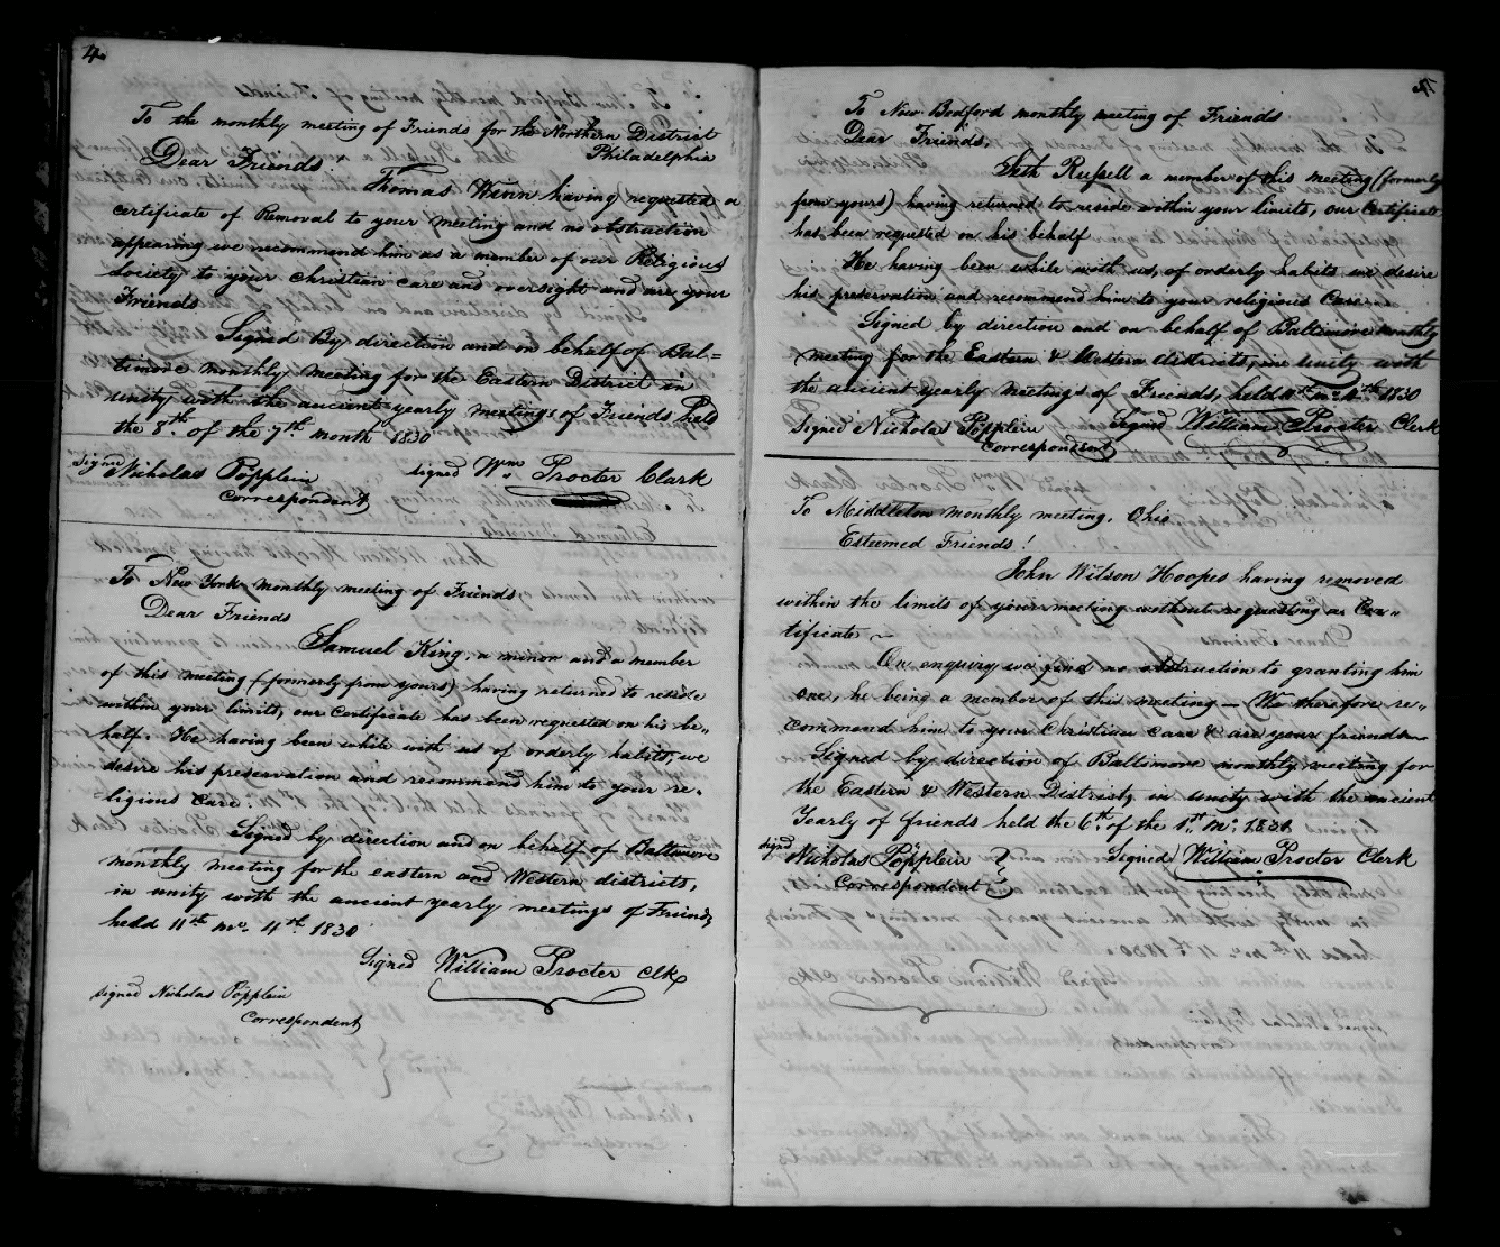 4
To the monthly meeting of Friends for the Northern District
Philadelphia
Dear Friends
Thomas Winn having requested a
certificate of Removal to your meeting and no obstruction
appearing we recommend him as a member of our Religious
Society to your christian care and oversight and are your
Friends
Signed By direction and on behalf of Bal=
timore monthly meeting for the Eastern District in
unity with the ancient yearly meetings of Friends held
the 8th. of the 7th. month 1830
Signed Nicholas Pöpplein signed Wm. Procter Clark
Correspondent
To New York monthly meeting of Friends
Dear Friends
Samuel King, a minor and a member
of this meeting (formerly from yours) having returned to reside
within your limits, our Certificate has been requested on his be„
half. He having been while with us of orderly habits, we
desire his preservation and recommend him to your re.
ligious Care.
Signed by direction and on behalf of Baltimore
monthly meeting for the eastern and Western districts,
in unity with the ancient yearly meetings of Friends
held 11th mo. 4th. 1830
Signed William Procter Clk
signed Nicholas Pöpplein
Correspondent
To New Bedford monthly meeting of Friends
Dear Friends,
Seth Russell a member of this meeting (formerly
from yours) having returned to reside within your limits, our Certificate
has been requested on his behalf
He having been while with us, of orderly habits we desire
his preservation and recommend him to your religious Care.
Signed by direction and on behalf of Baltimore monthly
meeting for the Eastern & Western districts, in unity with
the ancient yearly meetings of Friends, held 11th mo. 4th 1830
Signed Nicholas Pöpplein Signed William Procter Clerk
Correspondent
To Middleton monthly meeting, Ohio
Esteemed Friends!
John Wilson Hoopes having removed
within the limits of your meeting without requesting a Cer„
tificate ~
On enquiry we find no obstruction to granting him
one, he being a member of this meeting — We therefore re„
commend him to your Christian care & are your friends
Signed by direction of Baltimore monthly meeting for
the Eastern & Western Districts in unity with the ancient
Yearly of friends held the 6th. of the 1st. Mo. 1831
signd Nicholas Pöpplein Signed William Procter Clerk
Correspondent